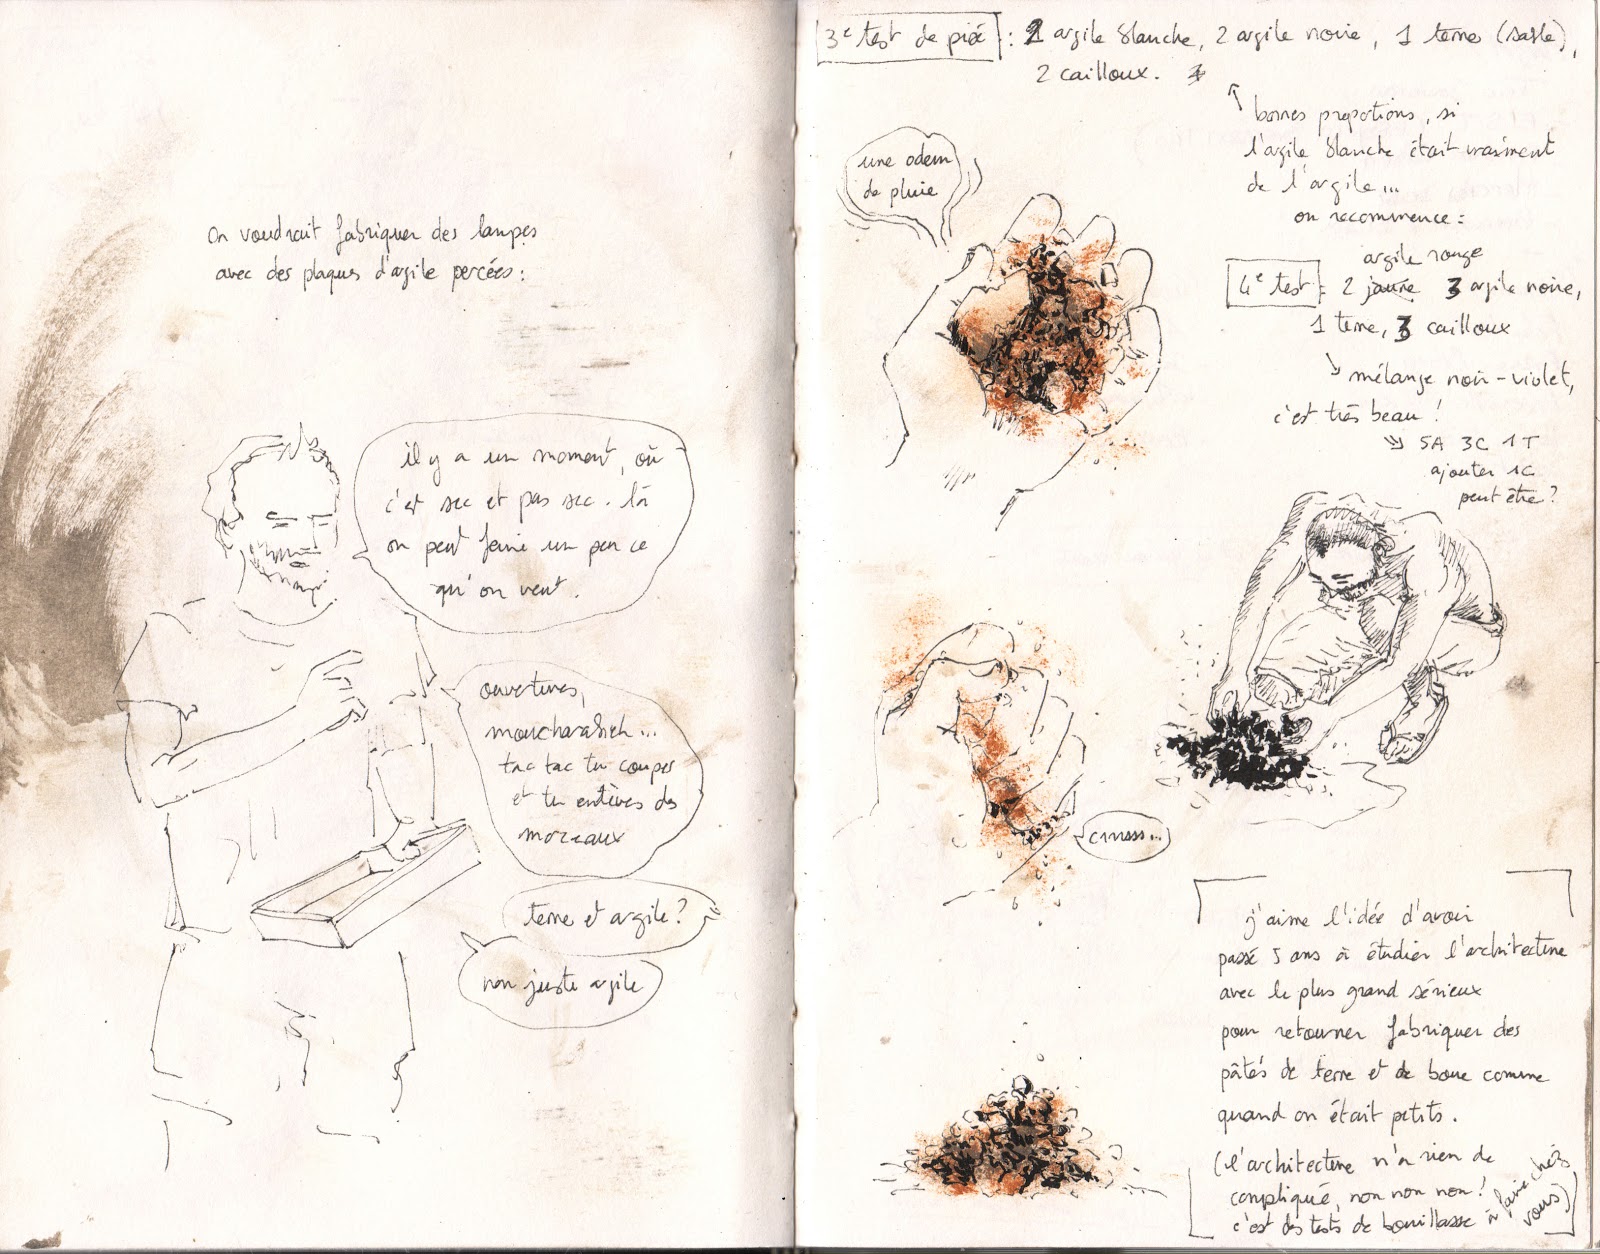 On voudrait fabriquer des lampes
avec des plaques d'argile percées :
il y a un moment, où
c'est sec et pas sec. là
on peut faire un peu ce
qu'on veut.
ouvertures,
moucharabieh...
tac tac tu coupes
et tu enlèves des
morceaux
terre et argile ?
non juste argile
3e test de pisé : 2 argile blanche, 2 argile noire, 1 terre (sable),
2 cailloux.
bonnes proportions, si
l'argile blanche était vraiment
de l'argile...
on recommence :
argile rouge
4e test : 2 jaune 3 argile noire,
1 terre, 3 cailloux
mélange noir-violet,
c'est très beau !
5A 3C 1T
ajouter 1C
peut être ?
une odeur
de pluie
crusss...
j'aime l'idée d'avoir
passé 5 ans à étudier l'architecture
avec le plus grand sérieux
pour retourner fabriquer des
pâtés de terre et de boue comme
quand on était petits.
(l'architecture n'a rien de
compliqué, non non non !
c'est des tests de bouillasse à faire chez
vous)